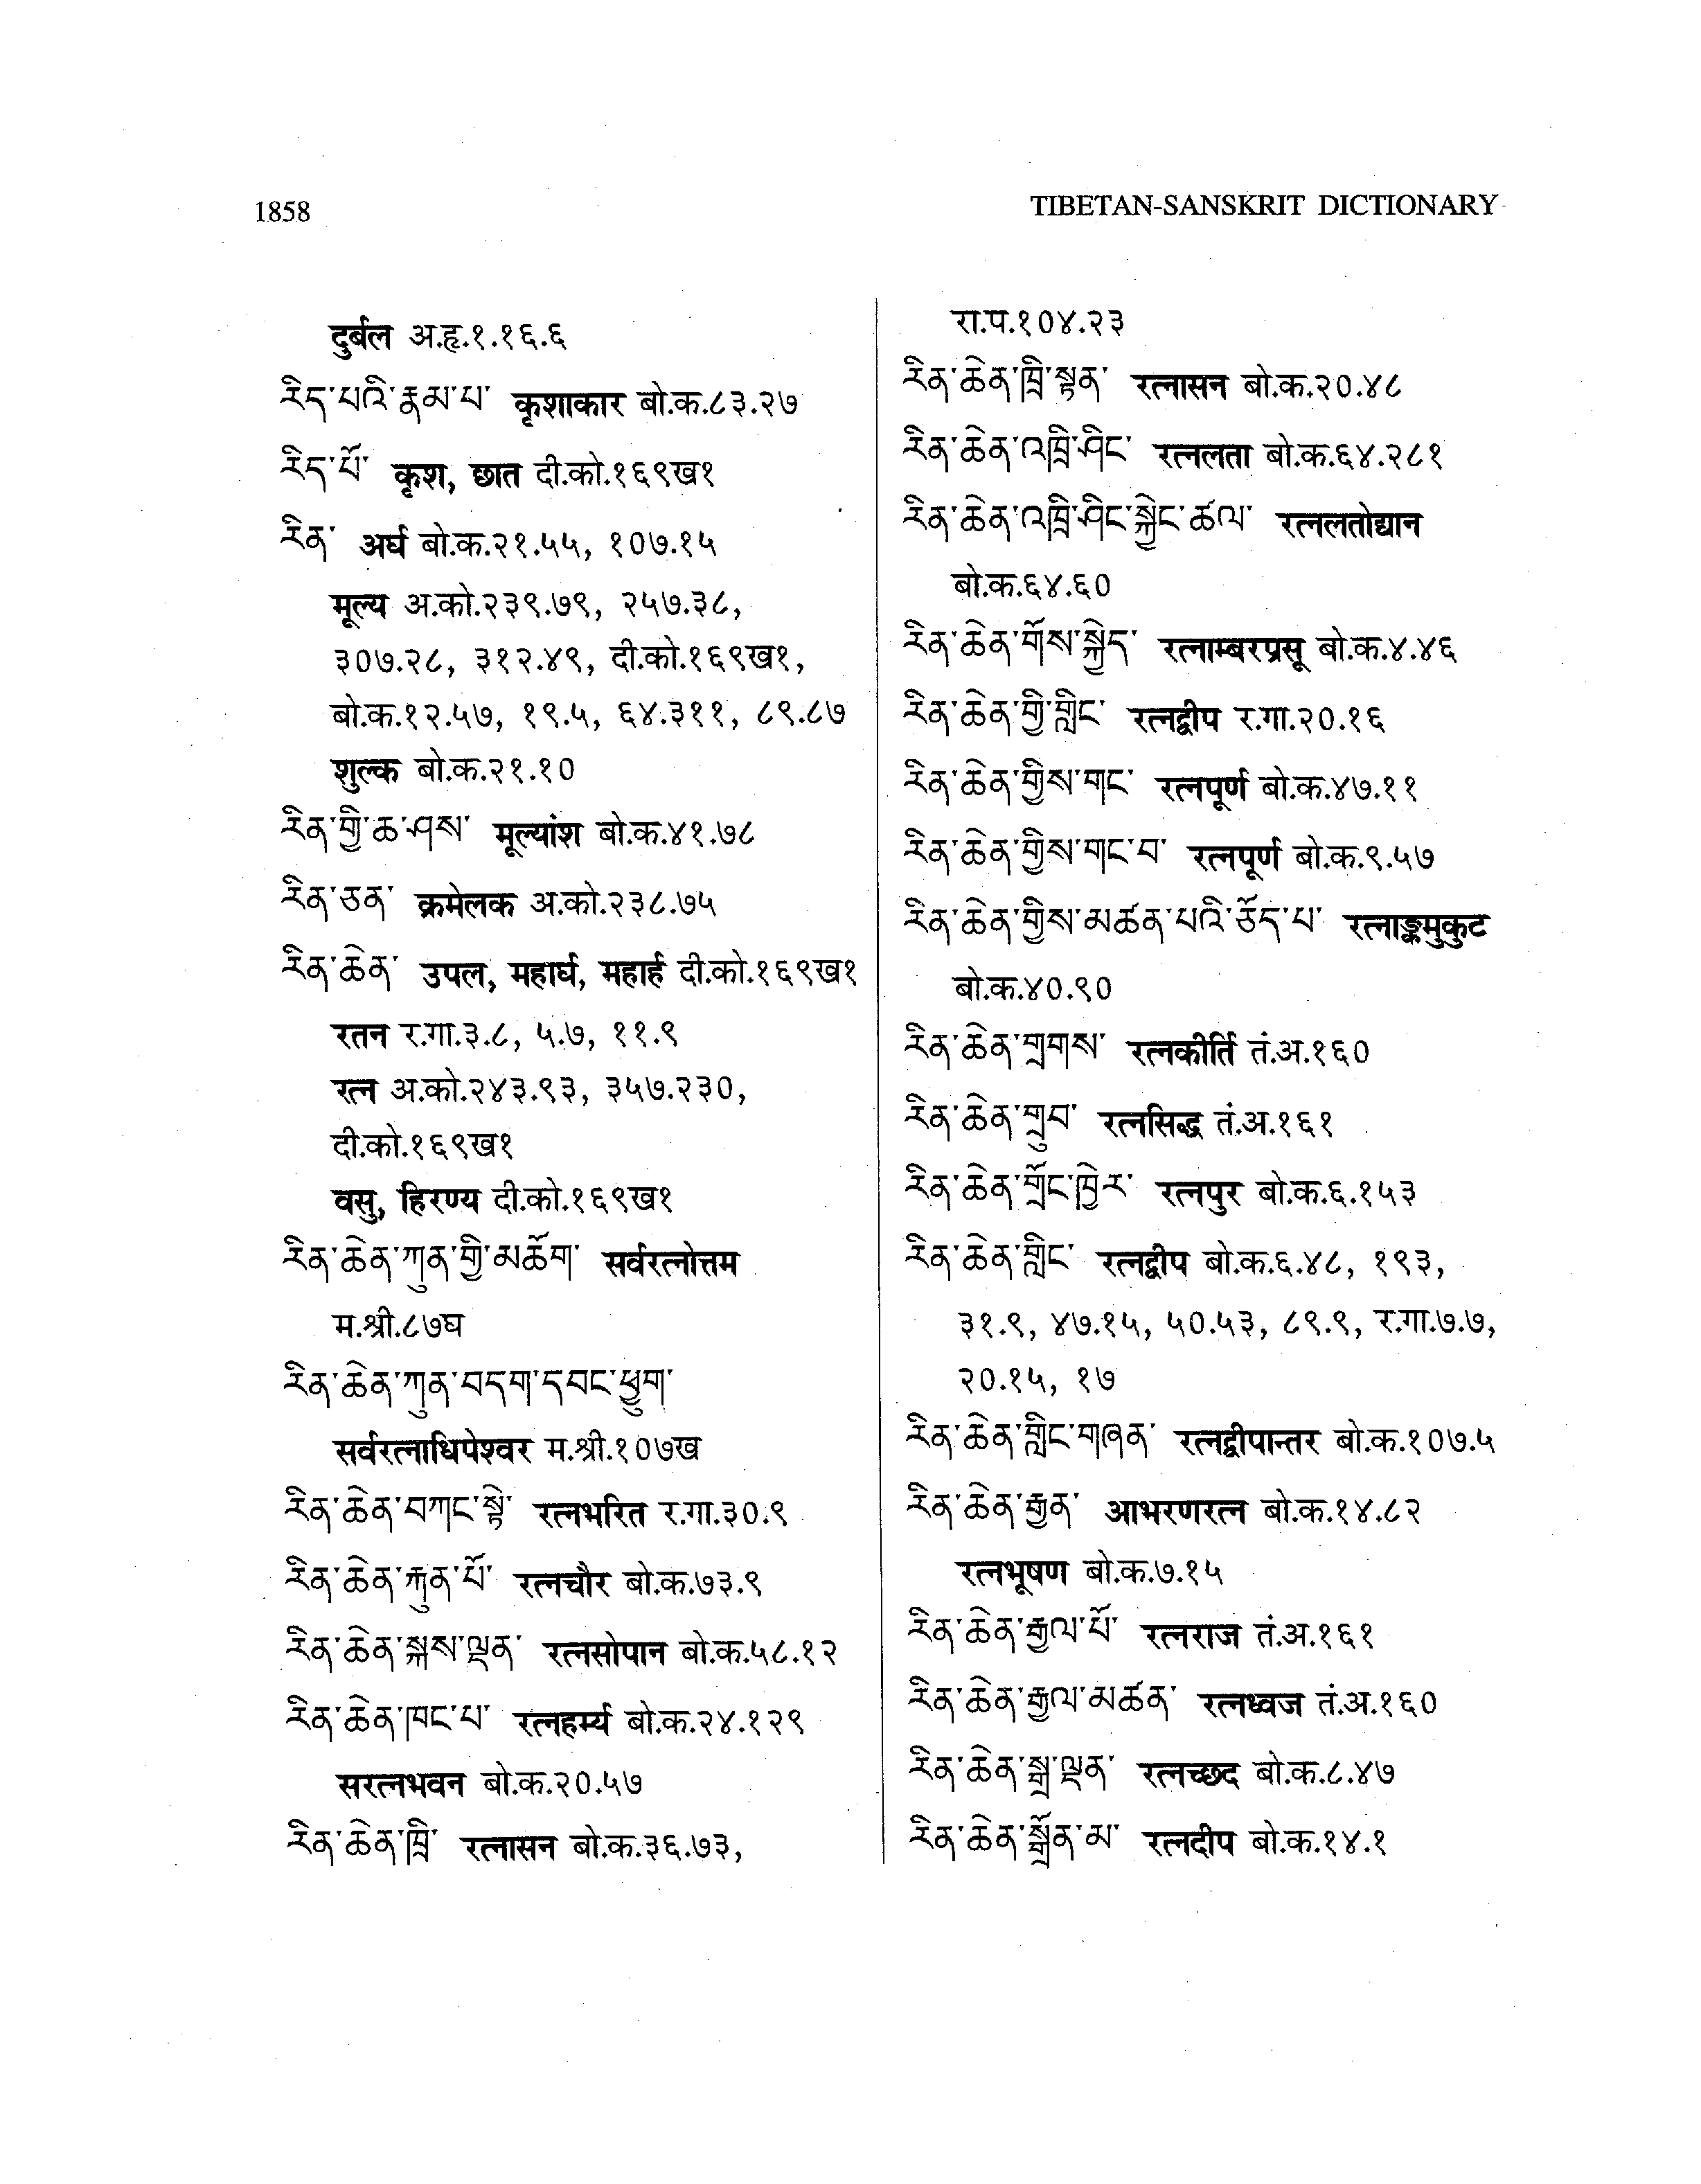 1858
TIBETAN-SANSKRIT DICTIONARY
दुर्बल अ.हृ.१.१६.६
རིད་པའི་རྣམ་པ་ कृशाकार बो.क.८३.२७
རིད་པོ་ कृश, छात दी.को.१६९ख१
རིན་ अर्घ बो.क.२१.५५, १०७.१५
मूल्य अ.को.२३९.७९, २५७.३८,
३०७.२८, ३१२.४९, दी.को.१६९ख१,
बो.क.१२.५७, १९.५, ६४.३११, ८९.८७
शुल्क बो.क.२१.१०
རིན་གྱི་ཆ་ཤས་ मूल्यांश बो.क.४१.७८
རིན་ཅན་ क्रमेलक अ.को.२३८.७५
རིན་ཆེན་ उपल, महार्घ, महार्ह दी.को.१६९ख१
रतन र.गा.३.८, ५.७, ११.९
रत्न अ.को.२४३.९३, ३५७.२३०,
दी.को.१६९ख१
वसु, हिरण्य दी.को.१६९ख१
རིན་ཆེན་ཀུན་གྱི་མཆོག་ सर्वरत्नोत्तम
म.श्री.८७घ
རིན་ཆེན་ཀུན་བདག་དབང་ཕྱུག་
सर्वरत्नाधिपेश्वर म.श्री.१०७ख
རིན་ཆེན་བཀང་སྟེ་ रत्नभरित र.गा.३०.९
རིན་ཆེན་རྐུན་པོ་ रत्नचौर बो.क.७३.९
རིན་ཆེན་སྐས་ལྡན་ रत्नसोपान बो.क.५८.१२
རིན་ཆེན་ཁང་པ་ रत्नहर्म्य बो.क.२४.१२९
सरत्नभवन बो.क.२०.५७
རིན་ཆེན་ཁྲི་ रत्नासन बो.क.३६.७३,
रा.प.१०४.२३
རིན་ཆེན་ཁྲི་སྟན་ रत्नासन बो.क.२०.४८
རིན་ཆེན་འཁྲི་ཤིང་ रत्नलता बो.क.६४.२८१
རིན་ཆེན་འཁྲི་ཤིང་སྐྱེང་ཚལ་ रत्नलतोद्यान
बो.क.६४.६०
རིན་ཆེན་གོས་སྐྱེད་ रत्नाम्बरप्रसू बो.क.४.४६
རིན་ཆེན་གྱི་གླིང་ रत्नद्वीप र.गा.२०.१६
རིན་ཆེན་གྱིས་གང་ रत्नपूर्ण बो.क.४७.११
རིན་ཆེན་གྱིས་གང་བ་ रत्नपूर्ण बो.क.९.५७
རིན་ཆེན་གྱིས་མཚན་པའི་ཅོད་པ་ रत्नाङ्कमुकुट
बो.क.४०.९०
རིན་ཆེན་གྲགས་ रत्नकीर्ति तं.अ.१६०
རིན་ཆེན་གྲུབ་ रत्नसिद्ध तं.अ.१६१
རིན་ཆེན་གྲོང་ཁྱེར་ रत्नपुर बो.क.६.१५३
རིན་ཆེན་གླིང་ रत्नद्वीप बो.क.६.४८, १९३,
३१.९, ४७.१५, ५०.५३, ८९.९, र.गा.७.७,
२०.१५, १७
རིན་ཆེན་གླིང་གཞན་ रत्नद्वीपान्तर बो.क.१०७.५
རིན་ཆེན་རྒྱན་ आभरणरत्न बो.क.१४.८२
रत्नभूषण बो.क.७.१५
རིན་ཆེན་རྒྱལ་པོ་ रत्नराज तं.अ.१६१
རིན་ཆེན་རྒྱལ་མཚན་ रत्नध्वज तं.अ.१६०
རིན་ཆེན་སྒྲ་ལྡན་ रत्नच्छद बो.क.८.४७
རིན་ཆེན་སྒྲོན་མ་ रत्नदीप बो.क.१४.१